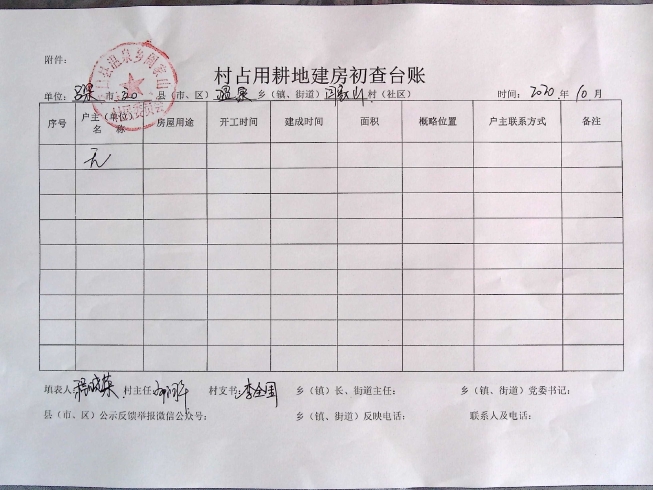 附件：
村占用耕地建房初查台账
单位： 市 县（市、区）温泉乡（镇、街道）闫家山村（社区） 时间：2020年10月
序号 户主（单位）名 称 房屋用途 开工时间 建成时间 面积 概略位置 户主联系方式 备注
无
填表人： 村主任： 村支书：李全国 乡（镇）长、街道主任： 乡（镇、街道）党委书记：
县（市、区）公示反馈举报微信公众号： 乡（镇、街道）反映电话： 联系人及电话：